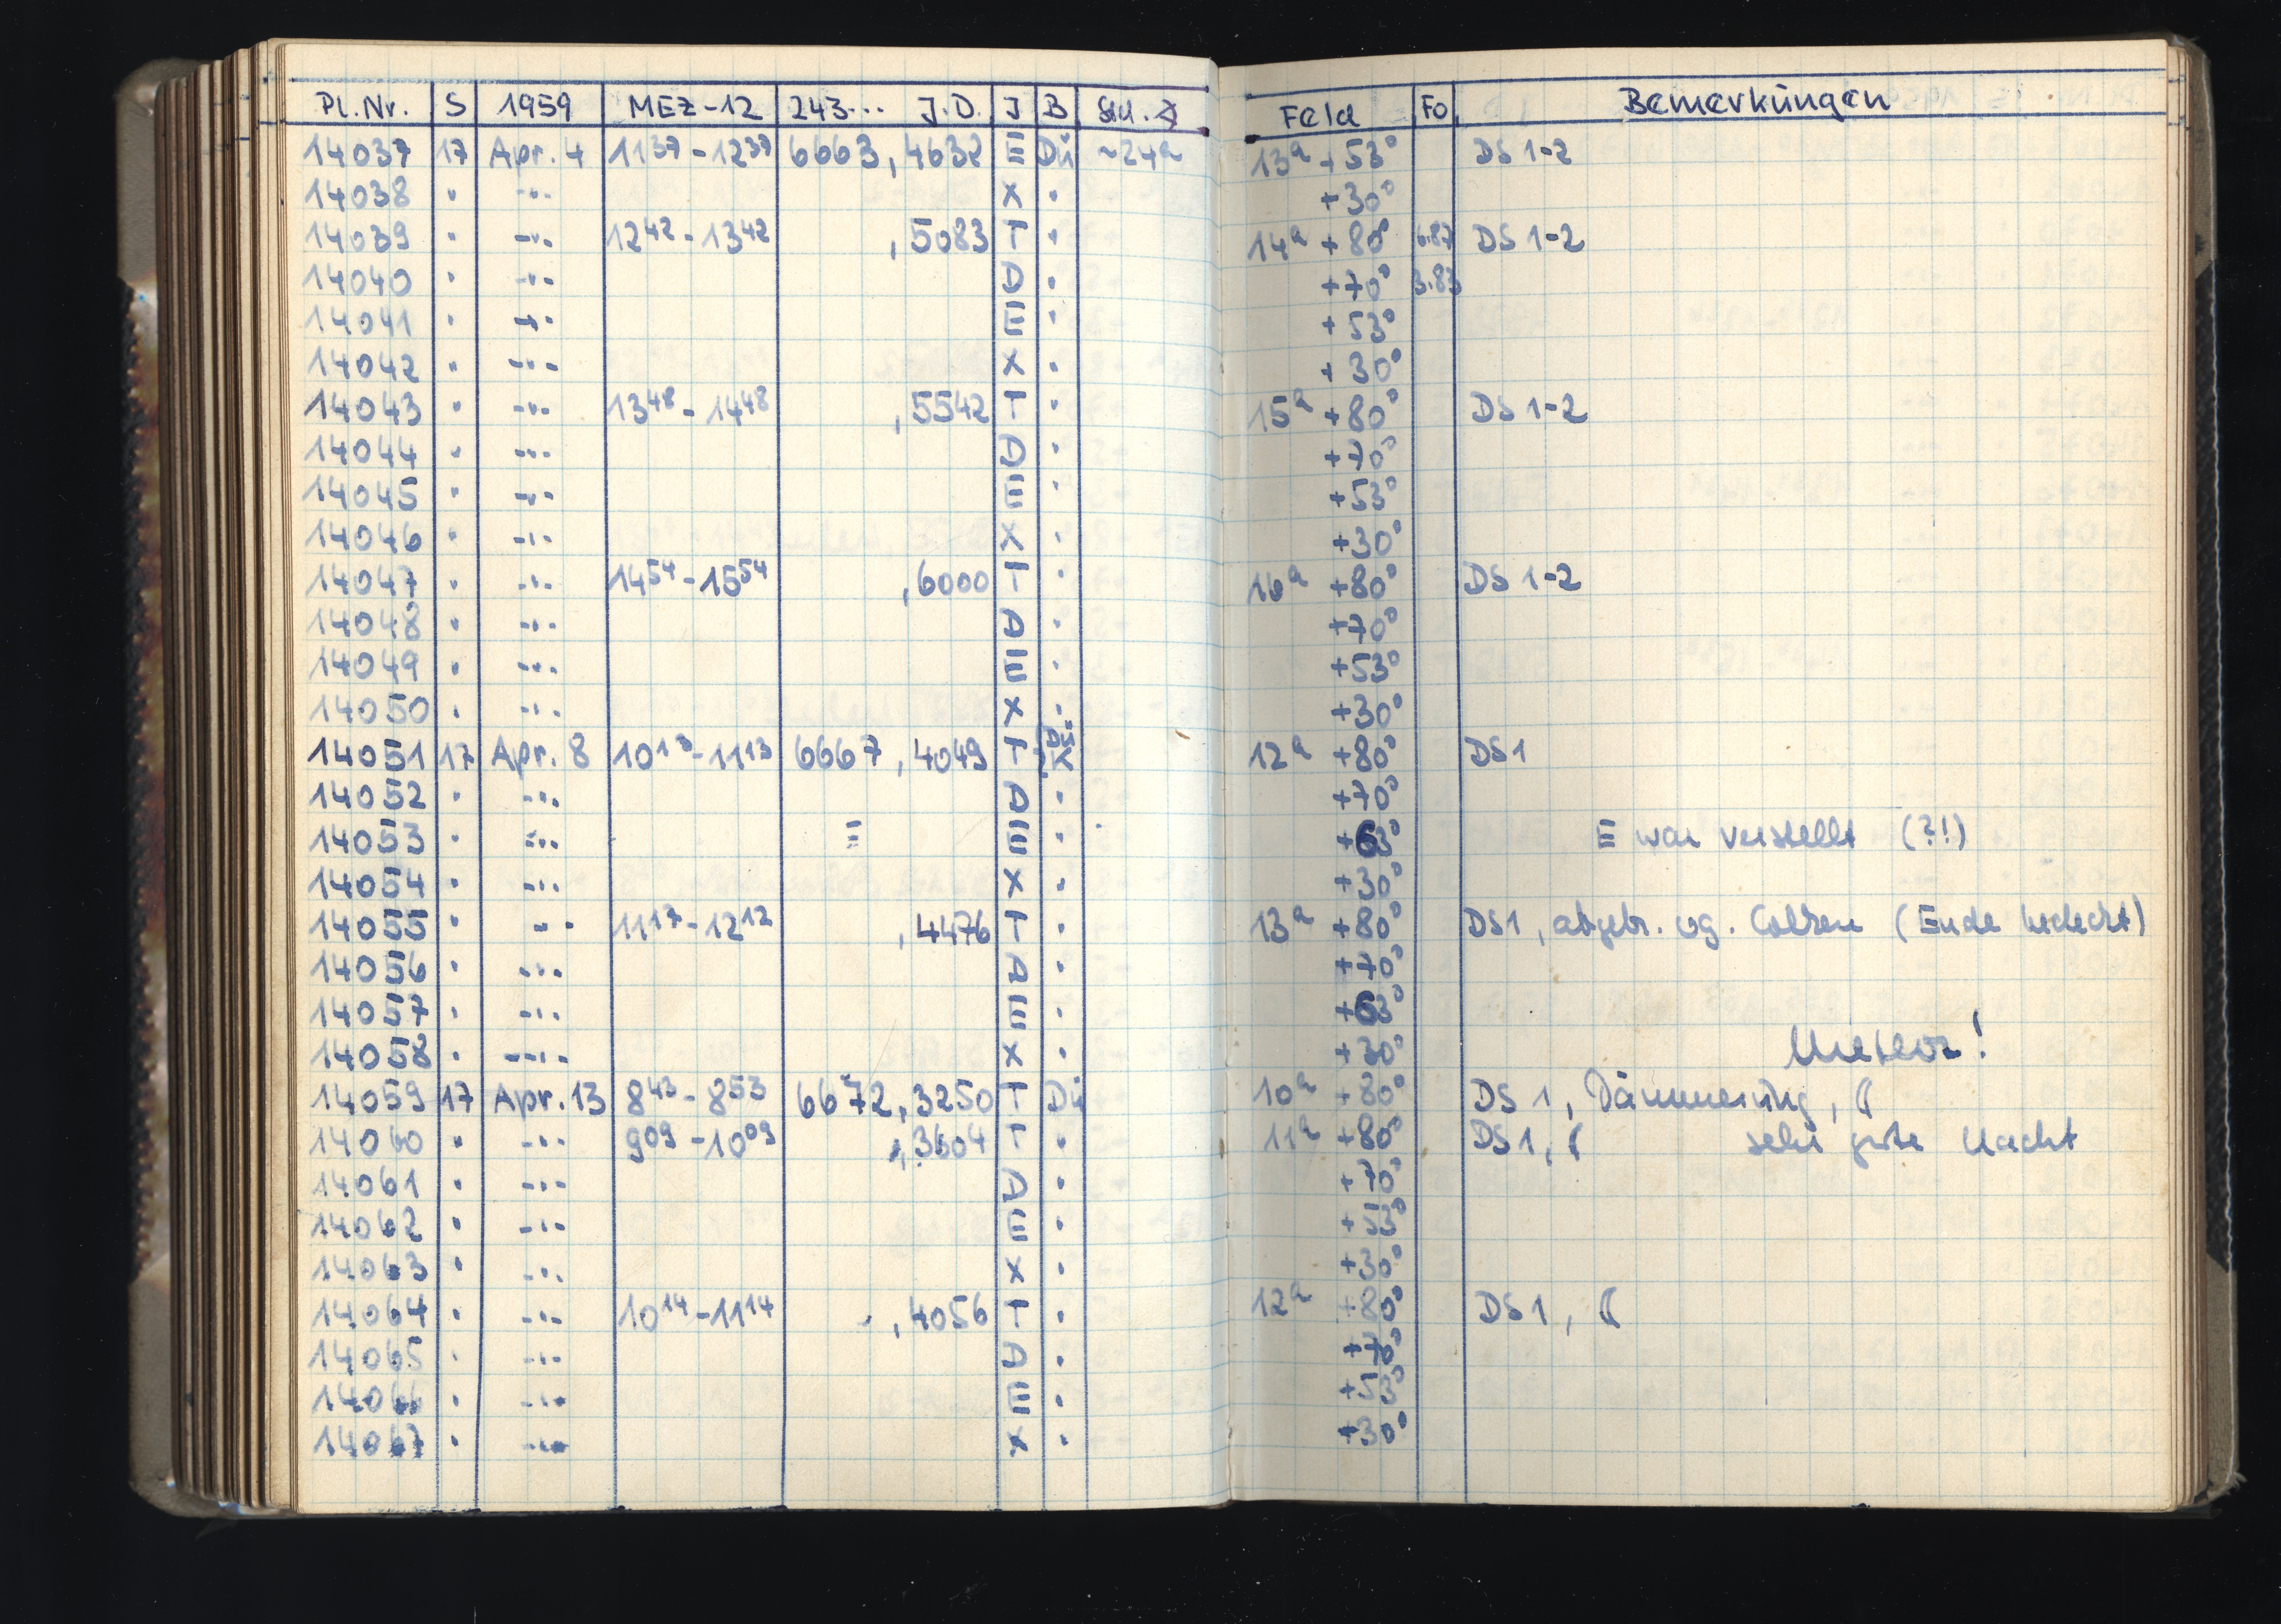 Pl.Nr. S 1959 MEZ-12 243... J.D. J B Std.∢ Feld Fo Bemerkungen
14037 17 Apr. 4 11³⁷-12³⁷ 6663,4632 E Dü ~24ᵃ 13ᵃ +53° DS 1-2
14038 " -"- X " +30°
14039 " -"- 12⁴²-13⁴² ,5083 T " 14ᵃ +80° DS 1-2
14040 " -"- D " +70° 3.83
14041 " -"- E " +53°
14042 " -"- X " +30°
14043 " -"- 13⁴⁸-14⁴⁸ ,5542 T " 15ᵃ +80° DS 1-2
14044 " -"- D " +70°
14045 " -"- E " +53°
14046 " -"- X " +30°
14047 " -"- 14⁵⁴-15⁵⁴ ,6000 T " 16ᵃ +80° DS 1-2
14048 " -"- D " +70°
14049 " -"- E " +53°
14050 " -"- X " +30°
14051 17 Apr. 8 10¹³-11¹³ 6667,4049 T 12ᵃ +80° DS1
14052 " -"- D " +70°
14053 " -"- E E " +63° E war verstellt (?!)
14054 " -"- X " +30°
14055 " -"- 11¹⁷-12¹² ,4476 T " 13ᵃ +80° DS1, abgebr. wg. Wolken (Ende bedeckt)
14056 " -"- D " +70°
14057 " -"- E " +63°
14058 " -"- X " +30° Meteor!
14059 17 Apr. 13 8⁴³-8⁵³ 6672,3250 T Dü 10ᵃ +80° DS 1, Dämmerung, ☾
14060 " -"- 9⁰⁹-10⁰⁹ ,3604 T " 11ᵃ +80° DS1, ☾ sehr gute Nacht
14061 " -"- D " +70°
14062 " -"- E " +53°
14063 " -"- X " +30°
14064 " -"- 10¹⁴-11¹⁴ ,4056 T " 12ᵃ +80° DS 1, ☾
14065 " -"- D " +70°
14066 " -"- E " +53°
14067 " -"- X " +30°